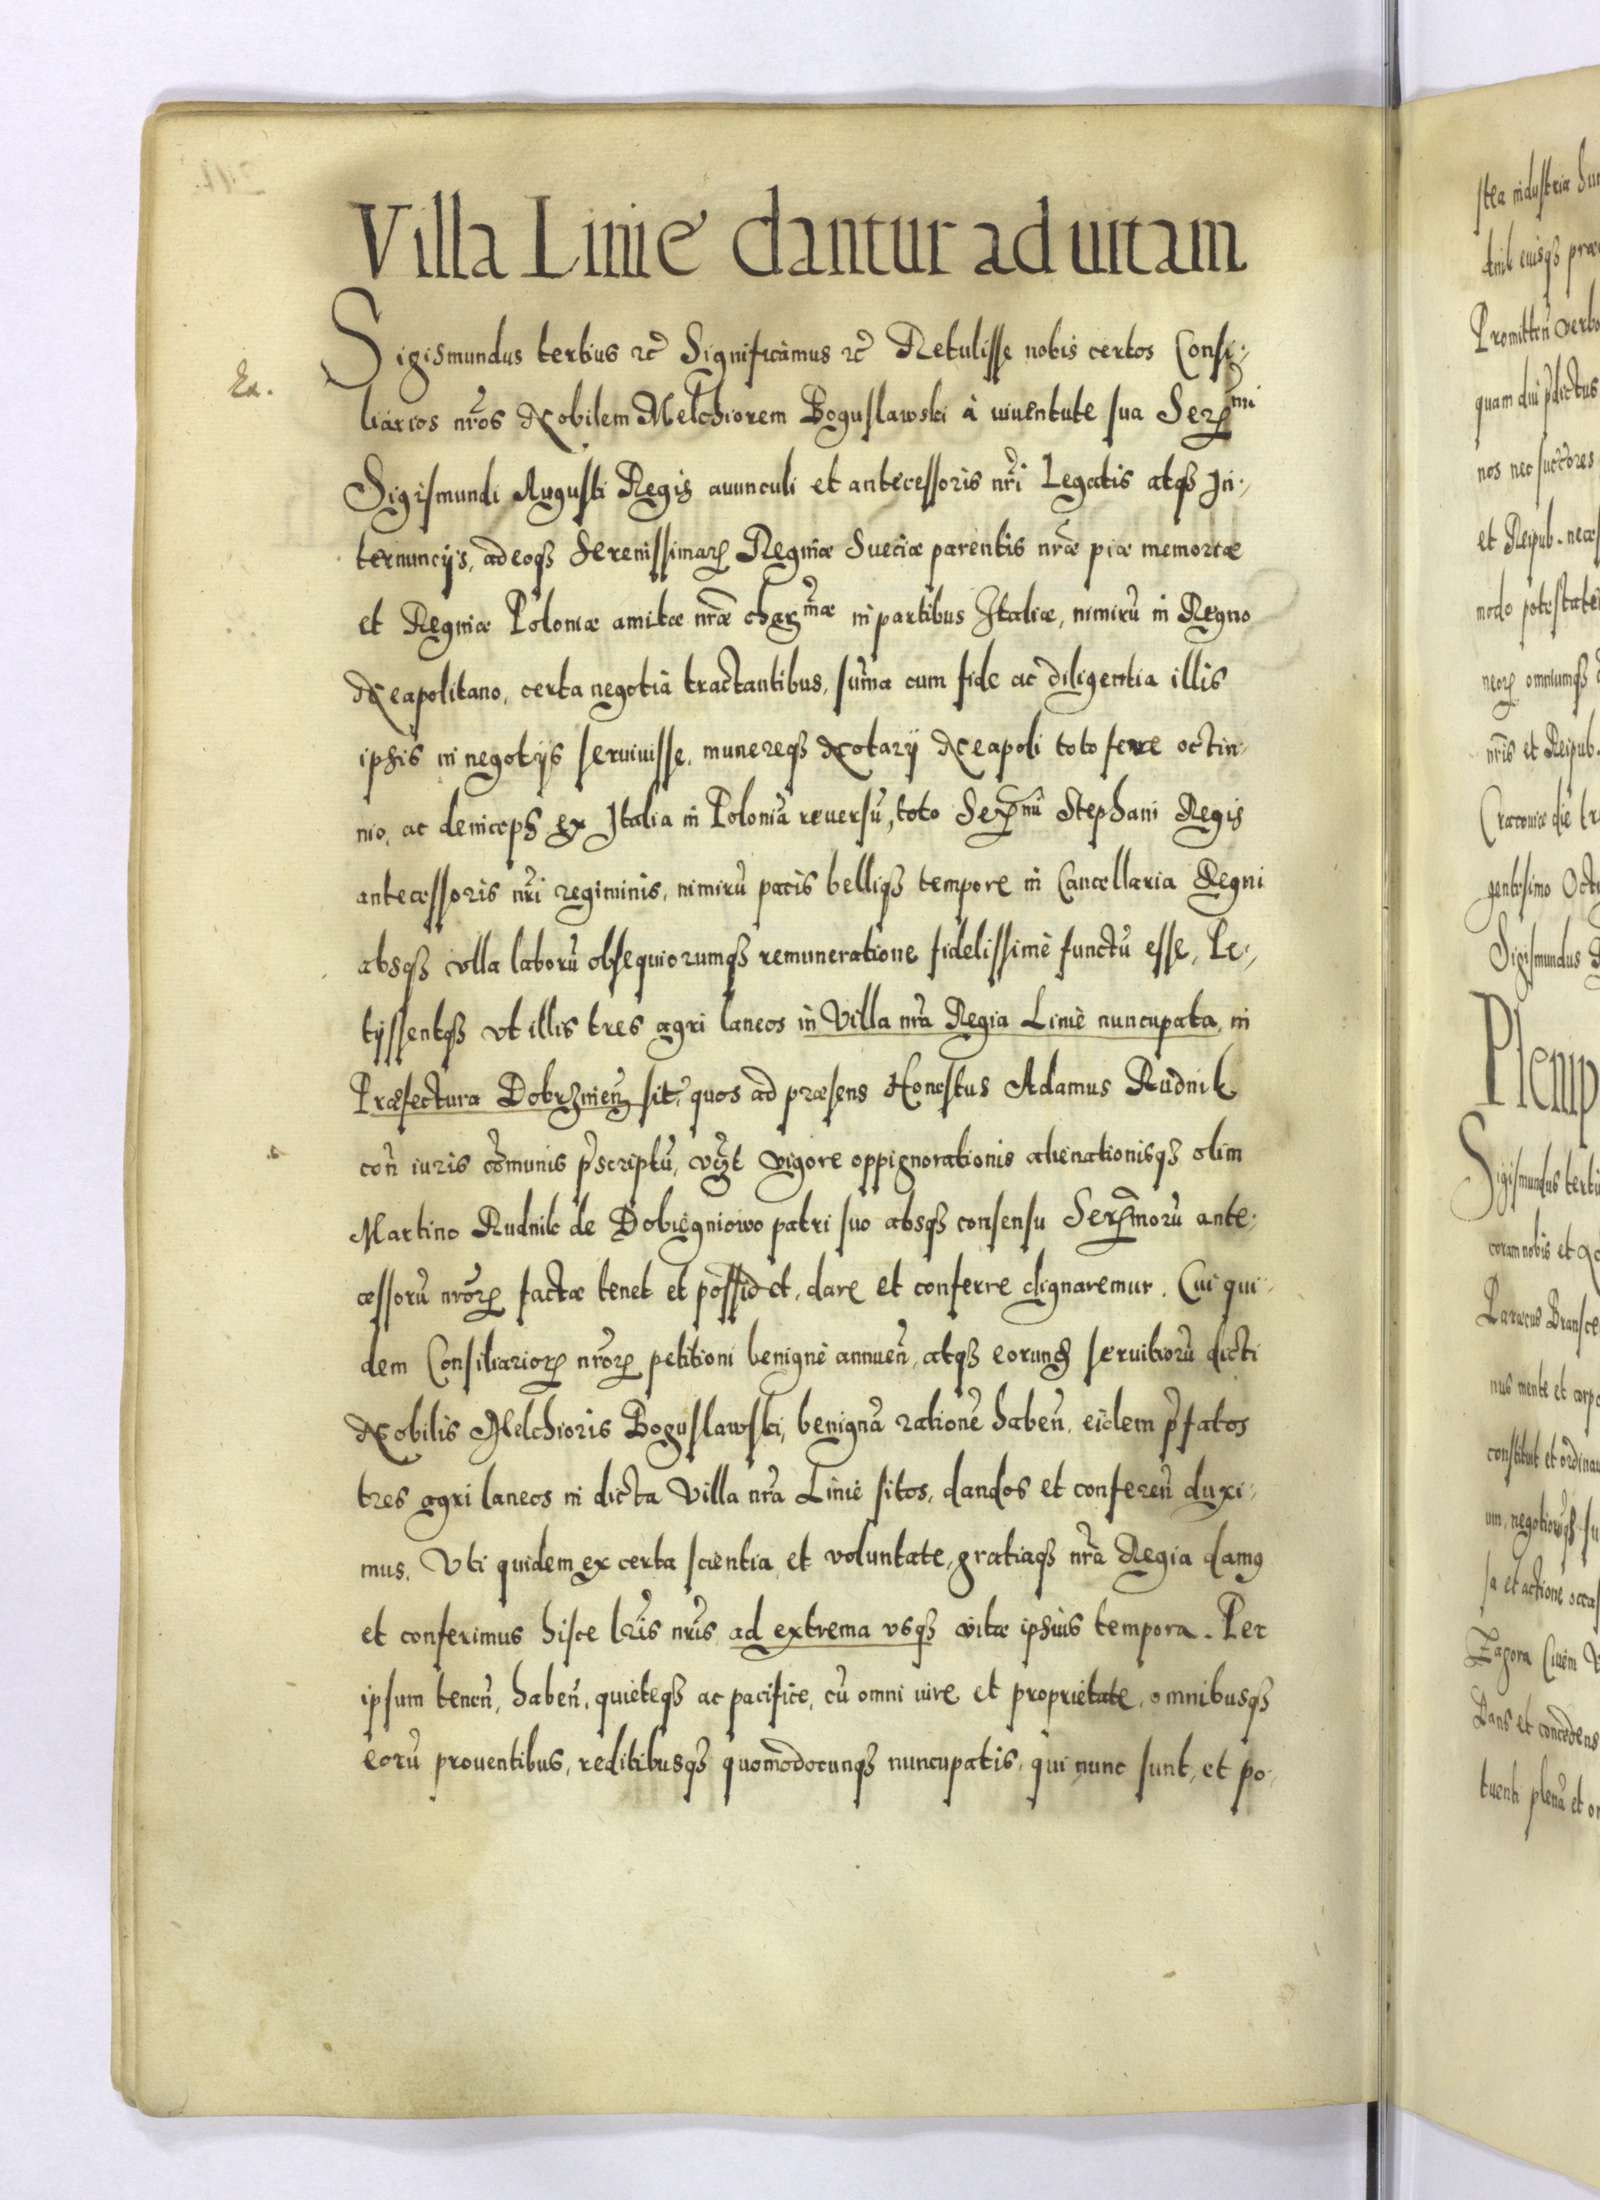 Villa Linie dantur ad uitam
Sigismundus tertius &c̃ Significamus &c̃ Retulisse nobis certos Consi-
Ex.
liarios nr̃os Nobilem Melchiorem Boguslawski à iuuentute sua Ser^mi
Sigismundi Augusti Regis auunculi et antecessoris nr̃i Legatis atq3 In-
ternuncijs, adeoq3 Serenissimar Reginæ Sueciæ parentis nr̃æ piæ memoriæ
et Reginæ Poloniæ amitæ nr̃æ char^mæ in partibus Italiæ, nimirũ in Regno
Neapolitano, certa negotia tractantibus, sum̃a cum fide ac diligentia illis
ipsis in negotijs seruiuisse, munereq3 Notarij Neapoli toto fere octin-
nio, ac deinceps ex Italia in Poloniã reuersũ, toto Ser^mi Stephani Regis
antecessoris nr̃i regiminis, nimirũ pacis belliq3 tempore in Cancellaria Regni
absq3 vlla laborũ obsequiorumq3 remuneratione fidelissimè functũ esse, Pe-
tijssentq3 vt illis tres agri laneos in Villa nr̃a Regia Liniè nuncupata, in
Præfectura Dobrzinen̄ sit̃, quos ad præsens Honestus Adamus Rudnik
con̄ iuris com̃unis p̃scriptũ, vz̃t vigore oppignorationis alienationisq3 olim
Martino Rudnik de Dobiegniowo patri suo absq3 consensu Ser̃morũ ante-
cessorũ nr̃or factæ tenet et possidet, dare et conferre dignaremur. Cui qui-
dem Consiliarior nr̃or petitioni benignè annuen̄, atq3 eorund seruitiorũ dicti
Nobilis Melchioris Boguslawski, benignã rationẽ haben̄, eidem p̃fatos
tres agri laneos in dicta Villa nr̃a Liniè sitos, dandos et conferen̄ duxi-
mus, Vti quidem ex certa scientia et voluntate, gratiaq3 nr̃a Regia damg
et conferimus hisce lr̃is nr̃is ad extrema vsq3 vitæ ipsius tempora. Per
ipsum tenen̄, haben̄, quieteq3 ac pacifice, cũ omni iure et proprietate, omnibusq3
eorũ prouentibus, reditibusq3 quomodocunq3 nuncupatis, qui nunc sunt, et po-